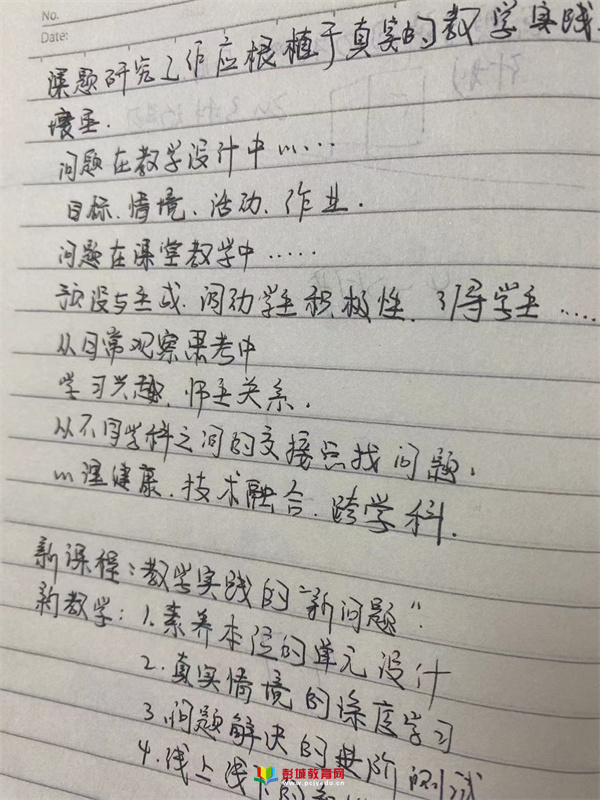 No.
Date:
课题研究工作应根植于真实的教学实践
问题在教学设计中……
目标、情境、活动、作业.
问题在课堂教学中……
预设与生成、调动学生积极性、引导学生……
从日常观察思考中
学习兴趣、师生关系.
从不同学科之间的交接点找问题.
心理健康、技术融合、跨学科.
新课程:教学实践的"新问题".
新教学:1.素养本位的单元设计
2.真实情境的深度学习
3.问题解决的进阶测试
4.线上线下的
彭城教育网
www.pcjyw.cn